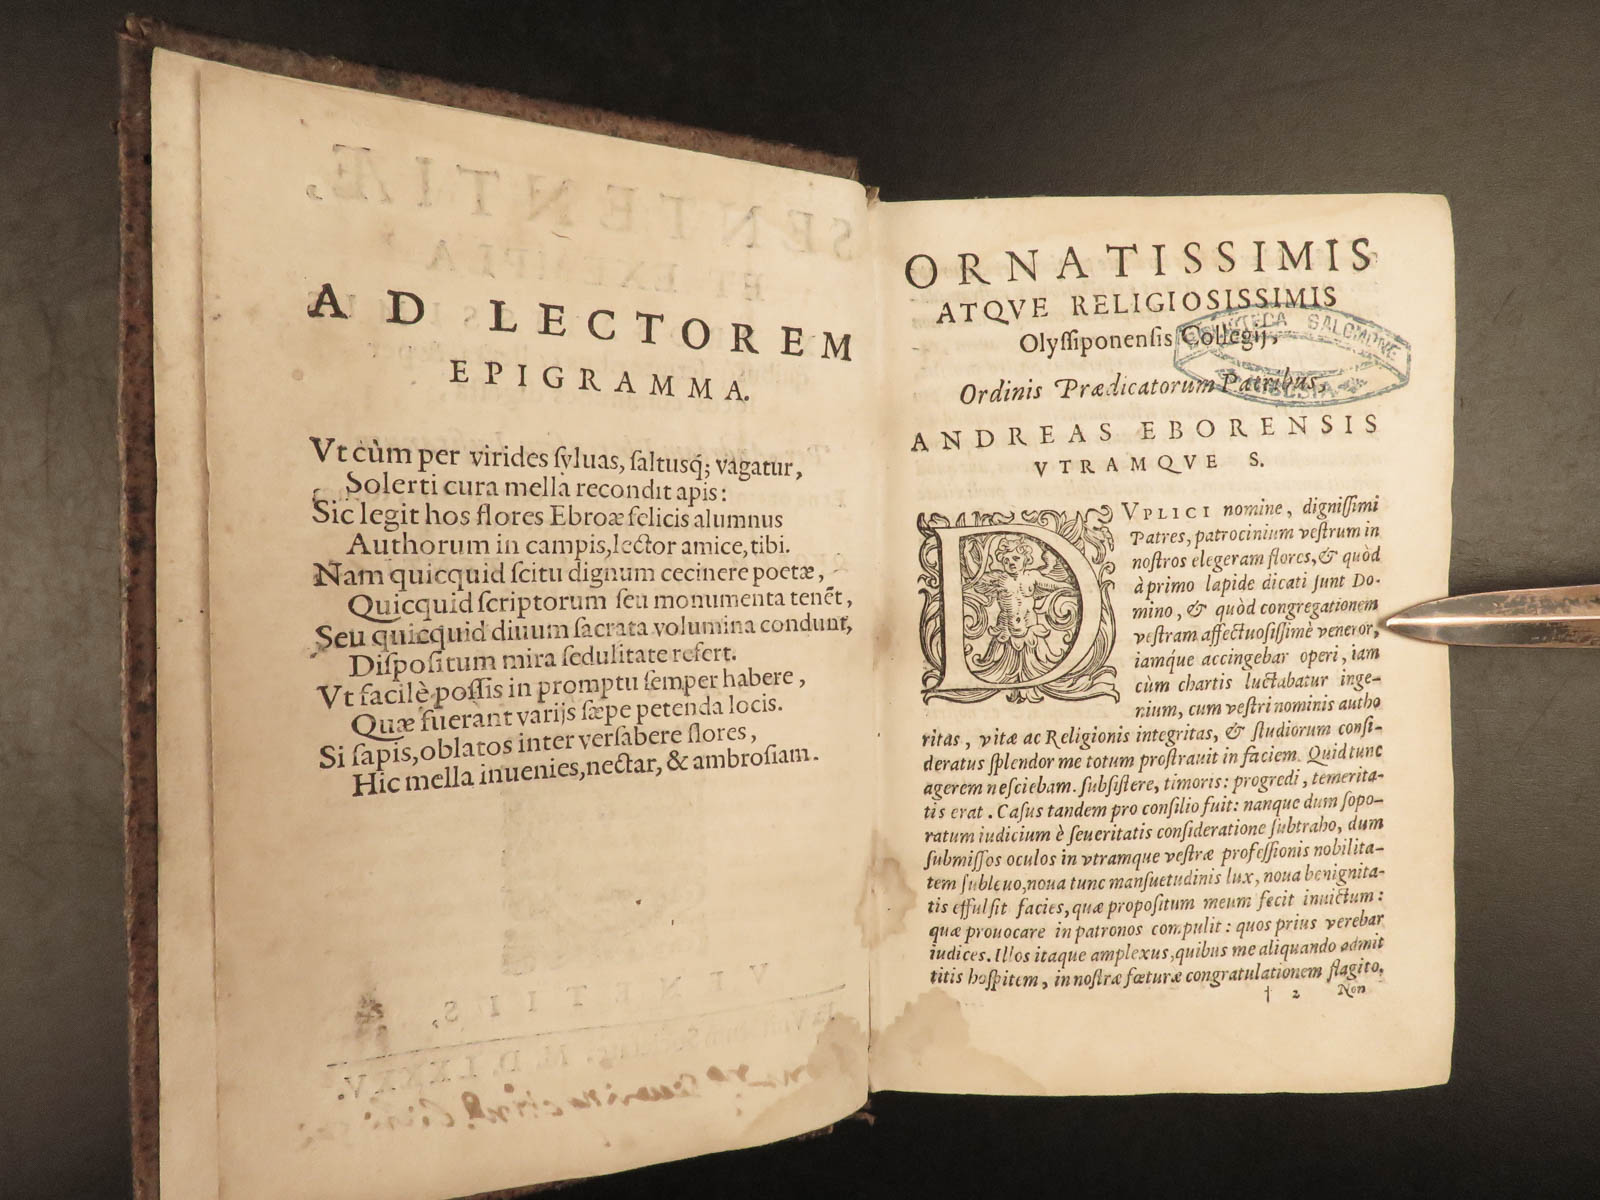 AD LECTOREM
EPIGRAMMA.
Vt cùm per virides syluas, saltusq; vagatur,
Solerti cura mella recondit apis:
Sic legit hos flores Ebroæ felicis alumnus
Authorum in campis, lector amice, tibi.
Nam quicquid scitu dignum cecinere poetæ,
Quicquid scriptorum seu monumenta tenēt,
Seu quicquid diuum sacrata volumina condunt,
Dispositum mira sedulitate refert.
Vt facilè possis in promptu semper habere,
Quæ fuerant varijs sæpe petenda locis.
Si sapis, oblatos inter versabere flores,
Hic mella inuenies, nectar, & ambrosiam.
ORNATISSIMIS
ATQVE RELIGIOSISSIMIS
Olyssiponensis Collegij,
Ordinis Prædicatorum Patribus,
ANDREAS EBORENSIS
VTRAMQVE S.
DVPLICI nomine, dignissimi
Patres, patrocinium vestrum in
nostros elegeram flores, & quòd
à primo lapide dicati sunt Do-
mino, & quòd congregationem
vestram affectuosissimè veneror,
iamq́ue accingebar operi, iam
cùm chartis luctabatur inge-
nium, cum vestri nominis autho
ritas, vitæ ac Religionis integritas, & studiorum consi-
deratus splendor me totum prostrauit in faciem. Quid tunc
agerem nesciebam. subsistere, timoris: progredi, temerita-
tis erat. Casus tandem pro consilio fuit: nanque dum sopo-
ratum iudicium è seueritatis consideratione subtraho, dum
submissos oculos in vtramque vestræ professionis nobilita-
tem subleuo, noua tunc mansuetudinis lux, noua benignita-
tis effulsit facies, quæ propositum meum fecit inuictum:
quæ prouocare in patronos compulit: quos prius verebar
iudices. Illos itaque amplexus, quibus me aliquando admit
titis hospitem, in nostræ fœturæ congratulationem flagito.
† 2 Non
BIBLIOTECA SALOMONE
SENTENTIÆ,
ET EXEMPLA
VENETIIS,
M. D. LXXXV.